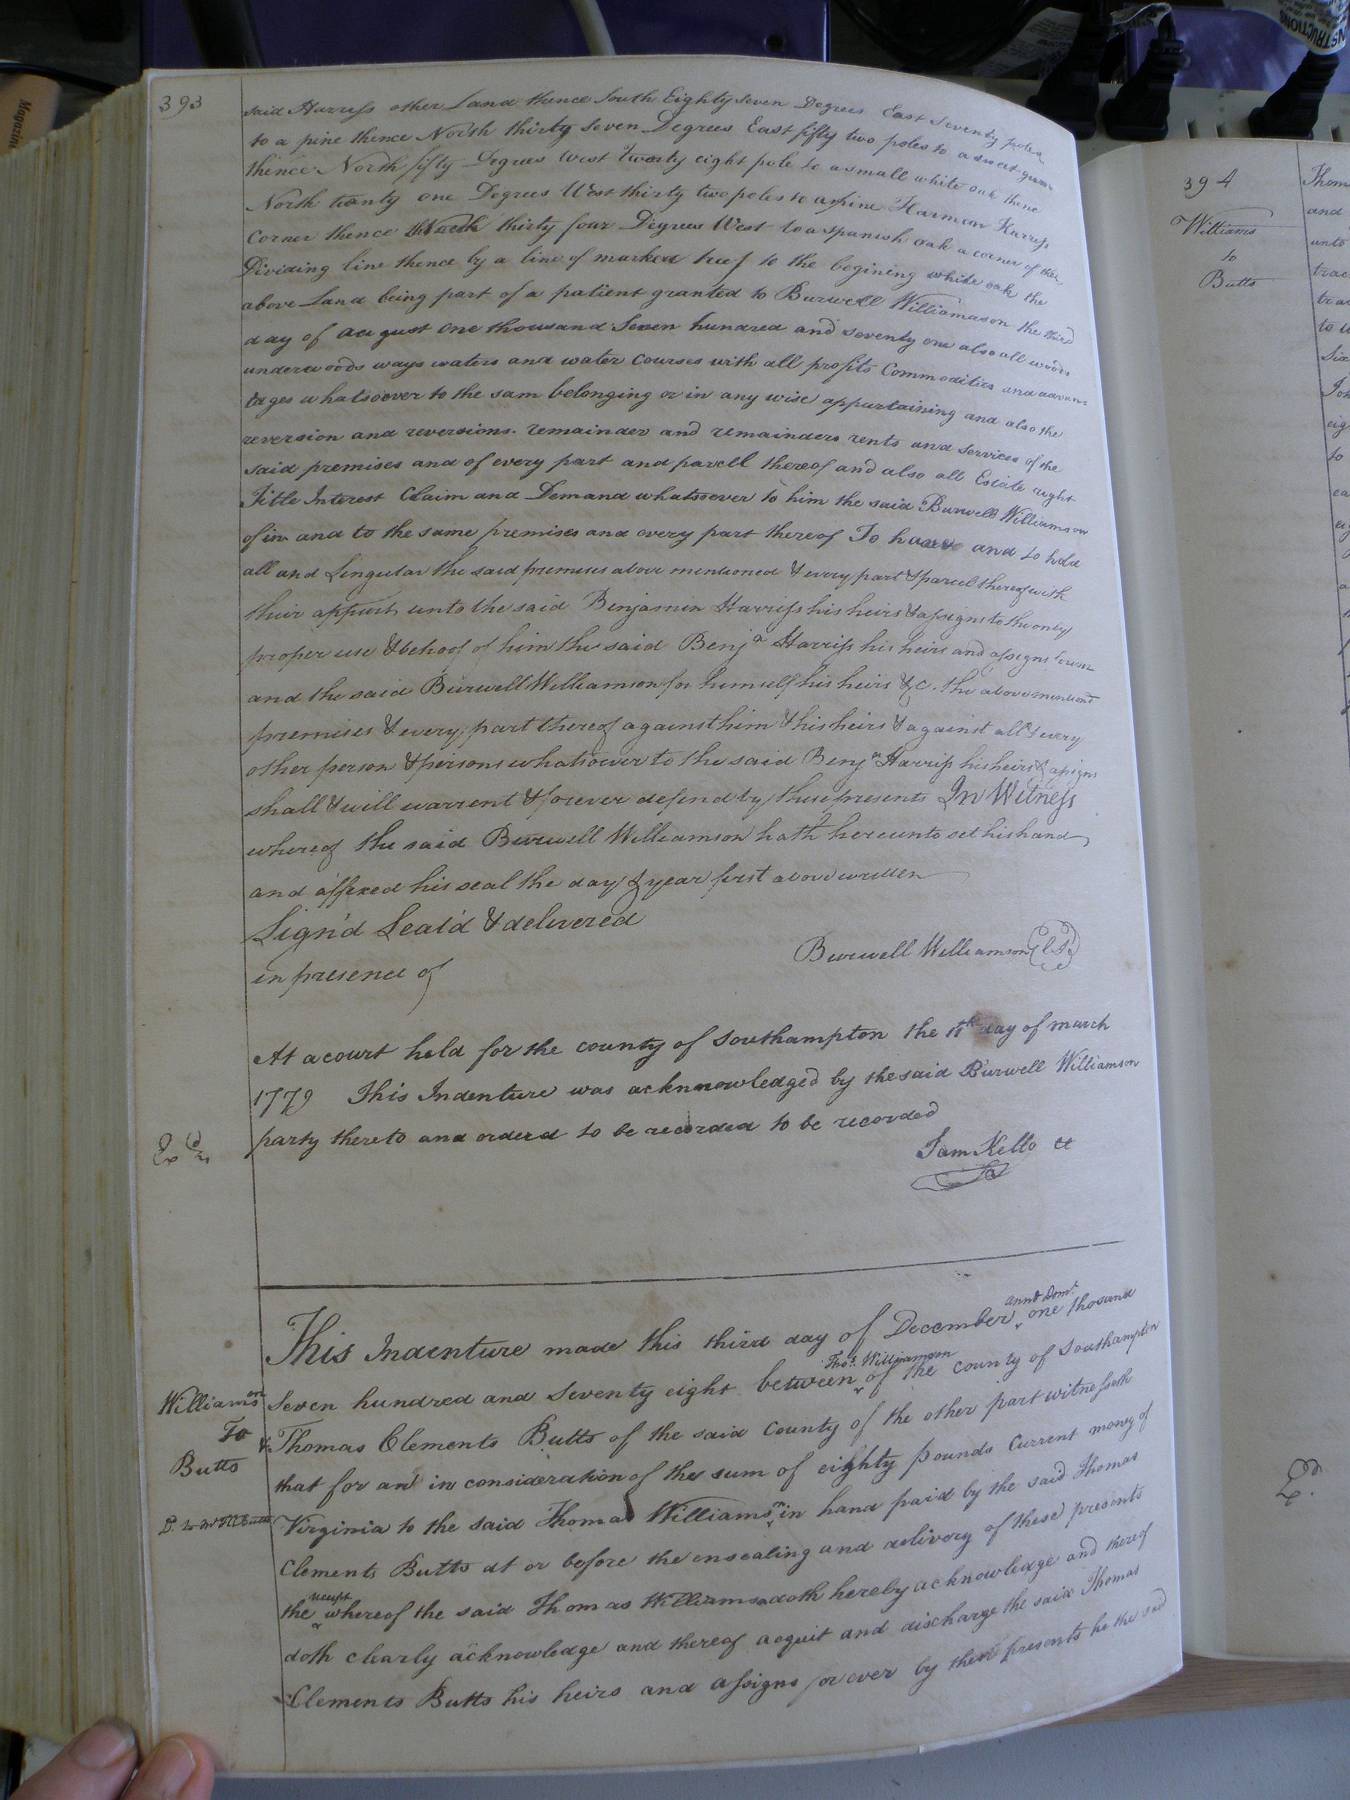 393
said Harriss other Land thence South Eighty Seven Degrees East Seventy poles
to a pine thence North thirty Seven Degrees East fifty two poles to a sweet gum
thence North fifty Degrees West Twenty eight pole to a small white oak thence
North twenty one Degrees West thirty two poles to a pine Harmon Harriss
Corner thence North thirty four Degrees West to a spanish oak a corner of the
Dividing line thence by a line of marked trees to the begining white oak the
above Land being part of a patient granted to Burwell Williamason the third
day of august one thousand Seven hundred and seventy one also all woods
underwoods ways waters and water Courses with all profits Commodities and advan
tages whatsoever to the sam belonging or in any wise appurtaining and also the
reversion and reversions remainder and remainders rents and services of the
said premises and of every part and parcell thereof and also all Estate right
Title Interest Claim and Demand whatsoever to him the said Burwell Williamson
of in and to the same premises and every part thereof To have and to hold
all and Singular the said premises above mentioned & every part & parcel thereof with
their appurt unto the said Benjamin Harriss his heirs & assigns to the only
proper use & behoof of him the said Benja Harriss his heirs and assigns forever
and the said Burwell Williamson for himself his heirs &c. the above mentiond
premises & every part thereof against him & his heirs & against all & every
other person & persons whatsoever to the said Benja Harriss his heirs & assigns
shall & will warrent & forever defend by these presents In Witness
whereof the said Burwell Williamson hath hereunto set his hand
and affixed his seal the day & year first above written
Sign'd Seal'd & delivered
in presence of
Burwell Williamson LS
At a court held for the county of Southampton the 11th day of march
1779 This Indenture was acknowledged by the said Burwell Williamson
party thereto and orderd to be recorded to be recorded
Exd
Sam Kello cc
annoDom.
This Indenture made this third day of December one thosand
Thos. Williamson
Seven hundred and Seventy eight between of the county of Southampton
Williamson
To
Butts
& Thomas Clements Butts of the said County of the other part witnesseth
that for and in consideration of the sum of eighty pounds Current money of
Virginia to the said Thomas Williamson in hand paid by the said Thomas
Clements Butts at or before the ensealing and delivery of these presents
receipt
the whereof the said Thomas Williamson doth hereby acknowledge and thereof
doth clearly acknowledge and thereof acquit and discharge the said Thomas
Clements Butts his heirs and assigns for ever by these presents he the said
394
Williams
to
Butts
Exd